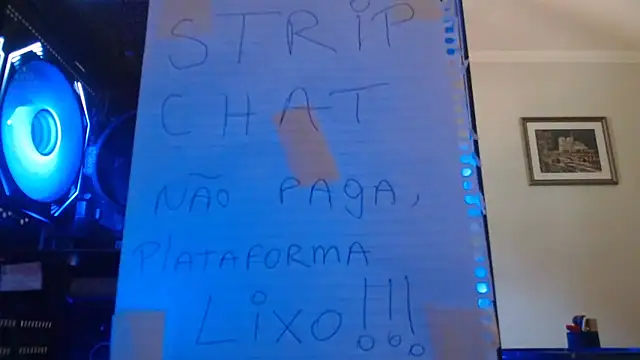 STRiP
CHAT
NÃO PAgA,
PlATAFORMA
LiXO!!!